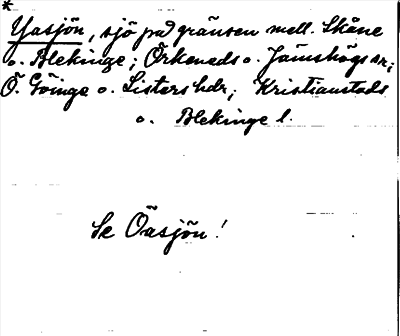 *
Yasjön, sjö på gränsen mell. Skåne
o. Blekinge; Örkeneds o. Jämshögs sn;
Ö. Göinge o. Listers hdr; Kristianstads
o. Blekinge l.
Se Öasjön!